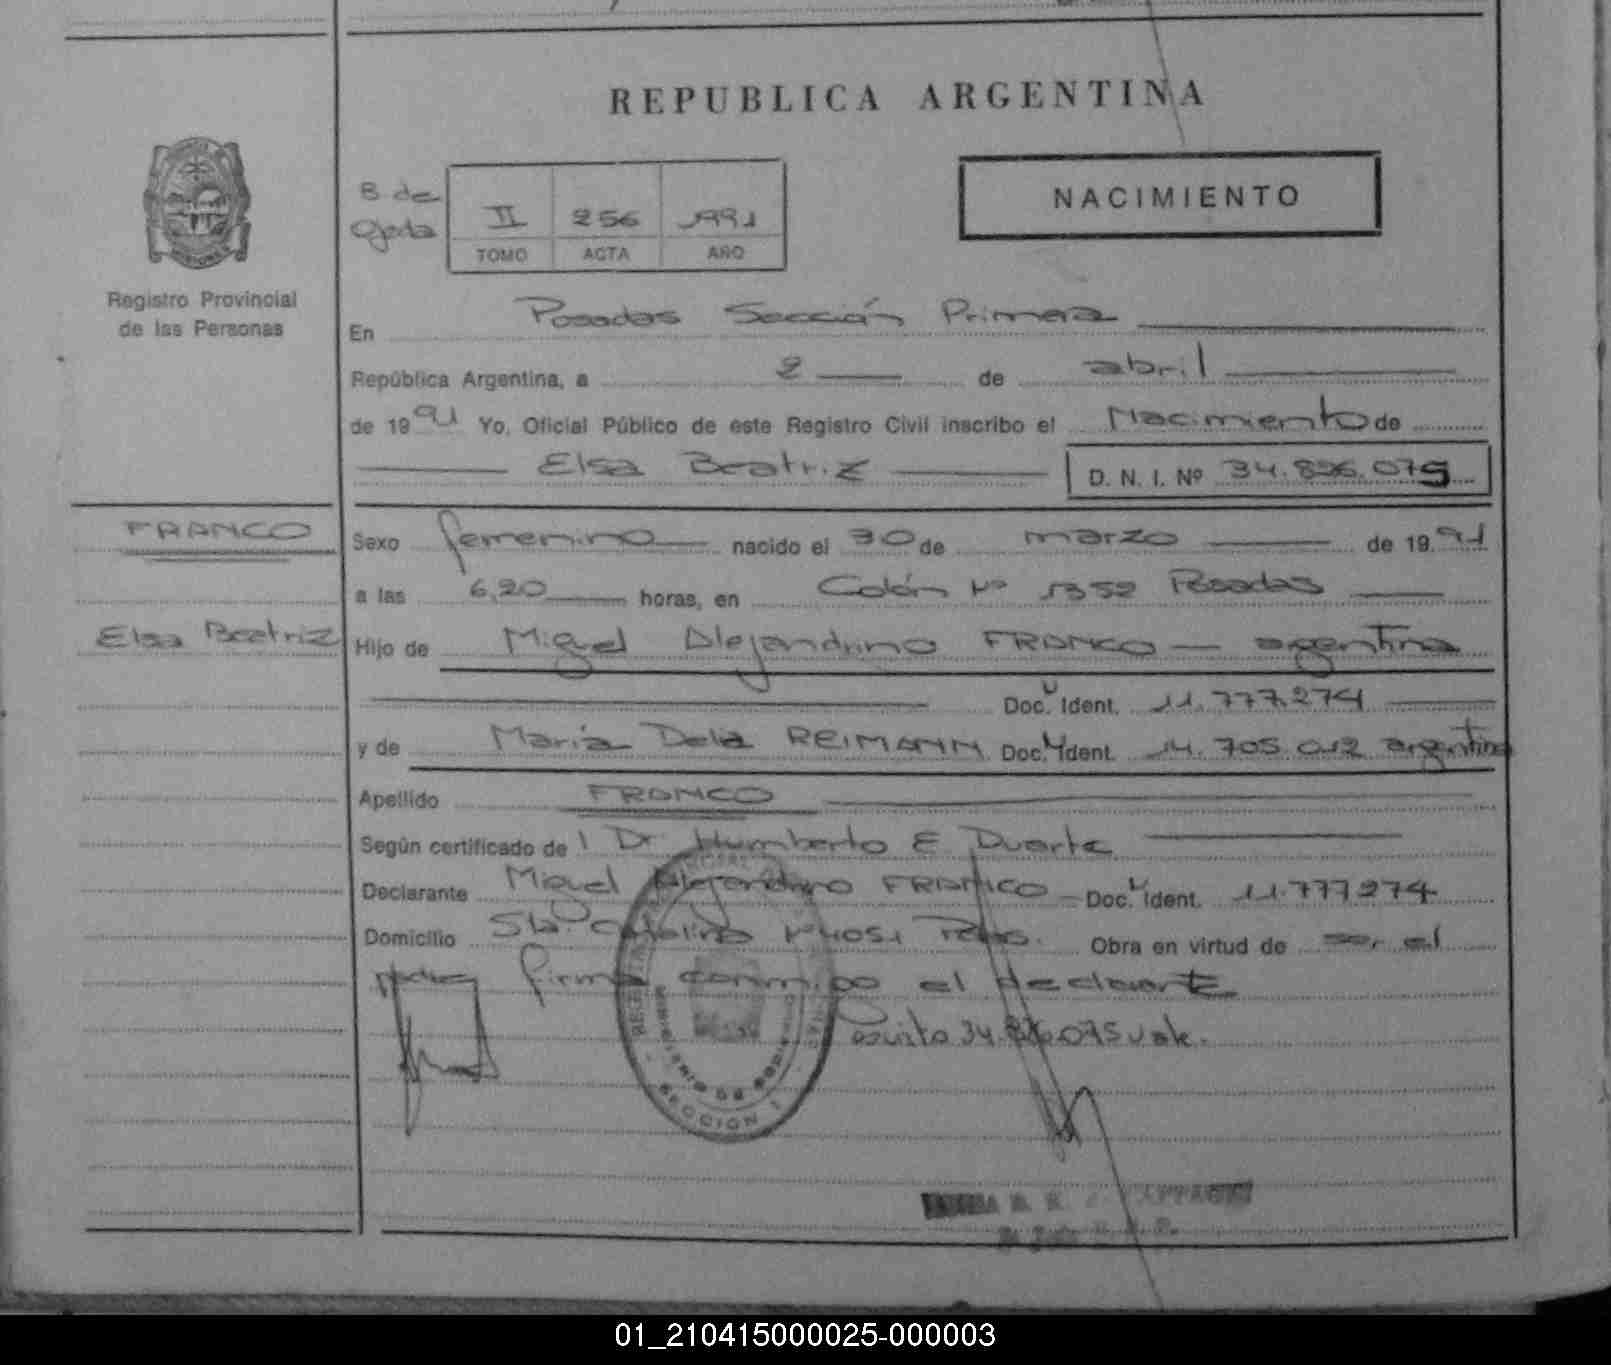 REPUBLICA ARGENTINA
B. de Ojeda
II 256 1991
TOMO ACTA AÑO
NACIMIENTO
Registro Provincial
de las Personas
En Posadas Sección Primera
República Argentina, a 2 de abril
de 1991 Yo, Oficial Público de este Registro Civil inscribo el Nacimiento de
Elsa Beatriz D. N. I. Nº 34.826.075
FRANCO
Sexo femenino nacido el 30 de marzo de 1991
a las 6,20 horas, en Colón Nº 1352 Posadas
Elsa Beatriz
Hijo de Miguel Alejandrino FRANCO — argentina
Doc. Ident. 11.777.274
y de María Dela REIMANN Doc. Ident. 14.705.012 argentina
Apellido FRANCO
Según certificado de l Dr Humberto E Duarte
Declarante Miguel Alejandrino FRANCO Doc. Ident. 11.777.274
Domicilio Sta. Catalina Nº 4051 Pdas. Obra en virtud de ser el
padre firma conmigo el declarante
34.826.075 vale.
SECCION 1
01_210415000025-000003